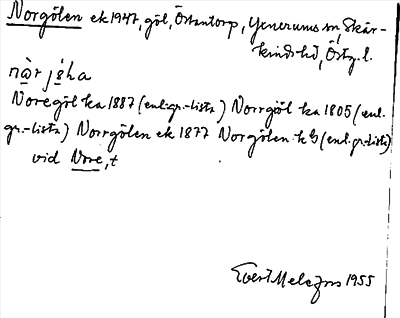 Norgölen ek 1947, göl, Östantorp, Yxnerums sn, Skär-
kinds hd, Östg. l.
Noregöl ka 1887 (enl. gr.-lista) Norrgöl ka 1805 (enl.
gr.-lista) Norrgölen ek 1877 Norgölen hG (enl. gr.-lista)
vid Nore, t
Evert Melefors 1955